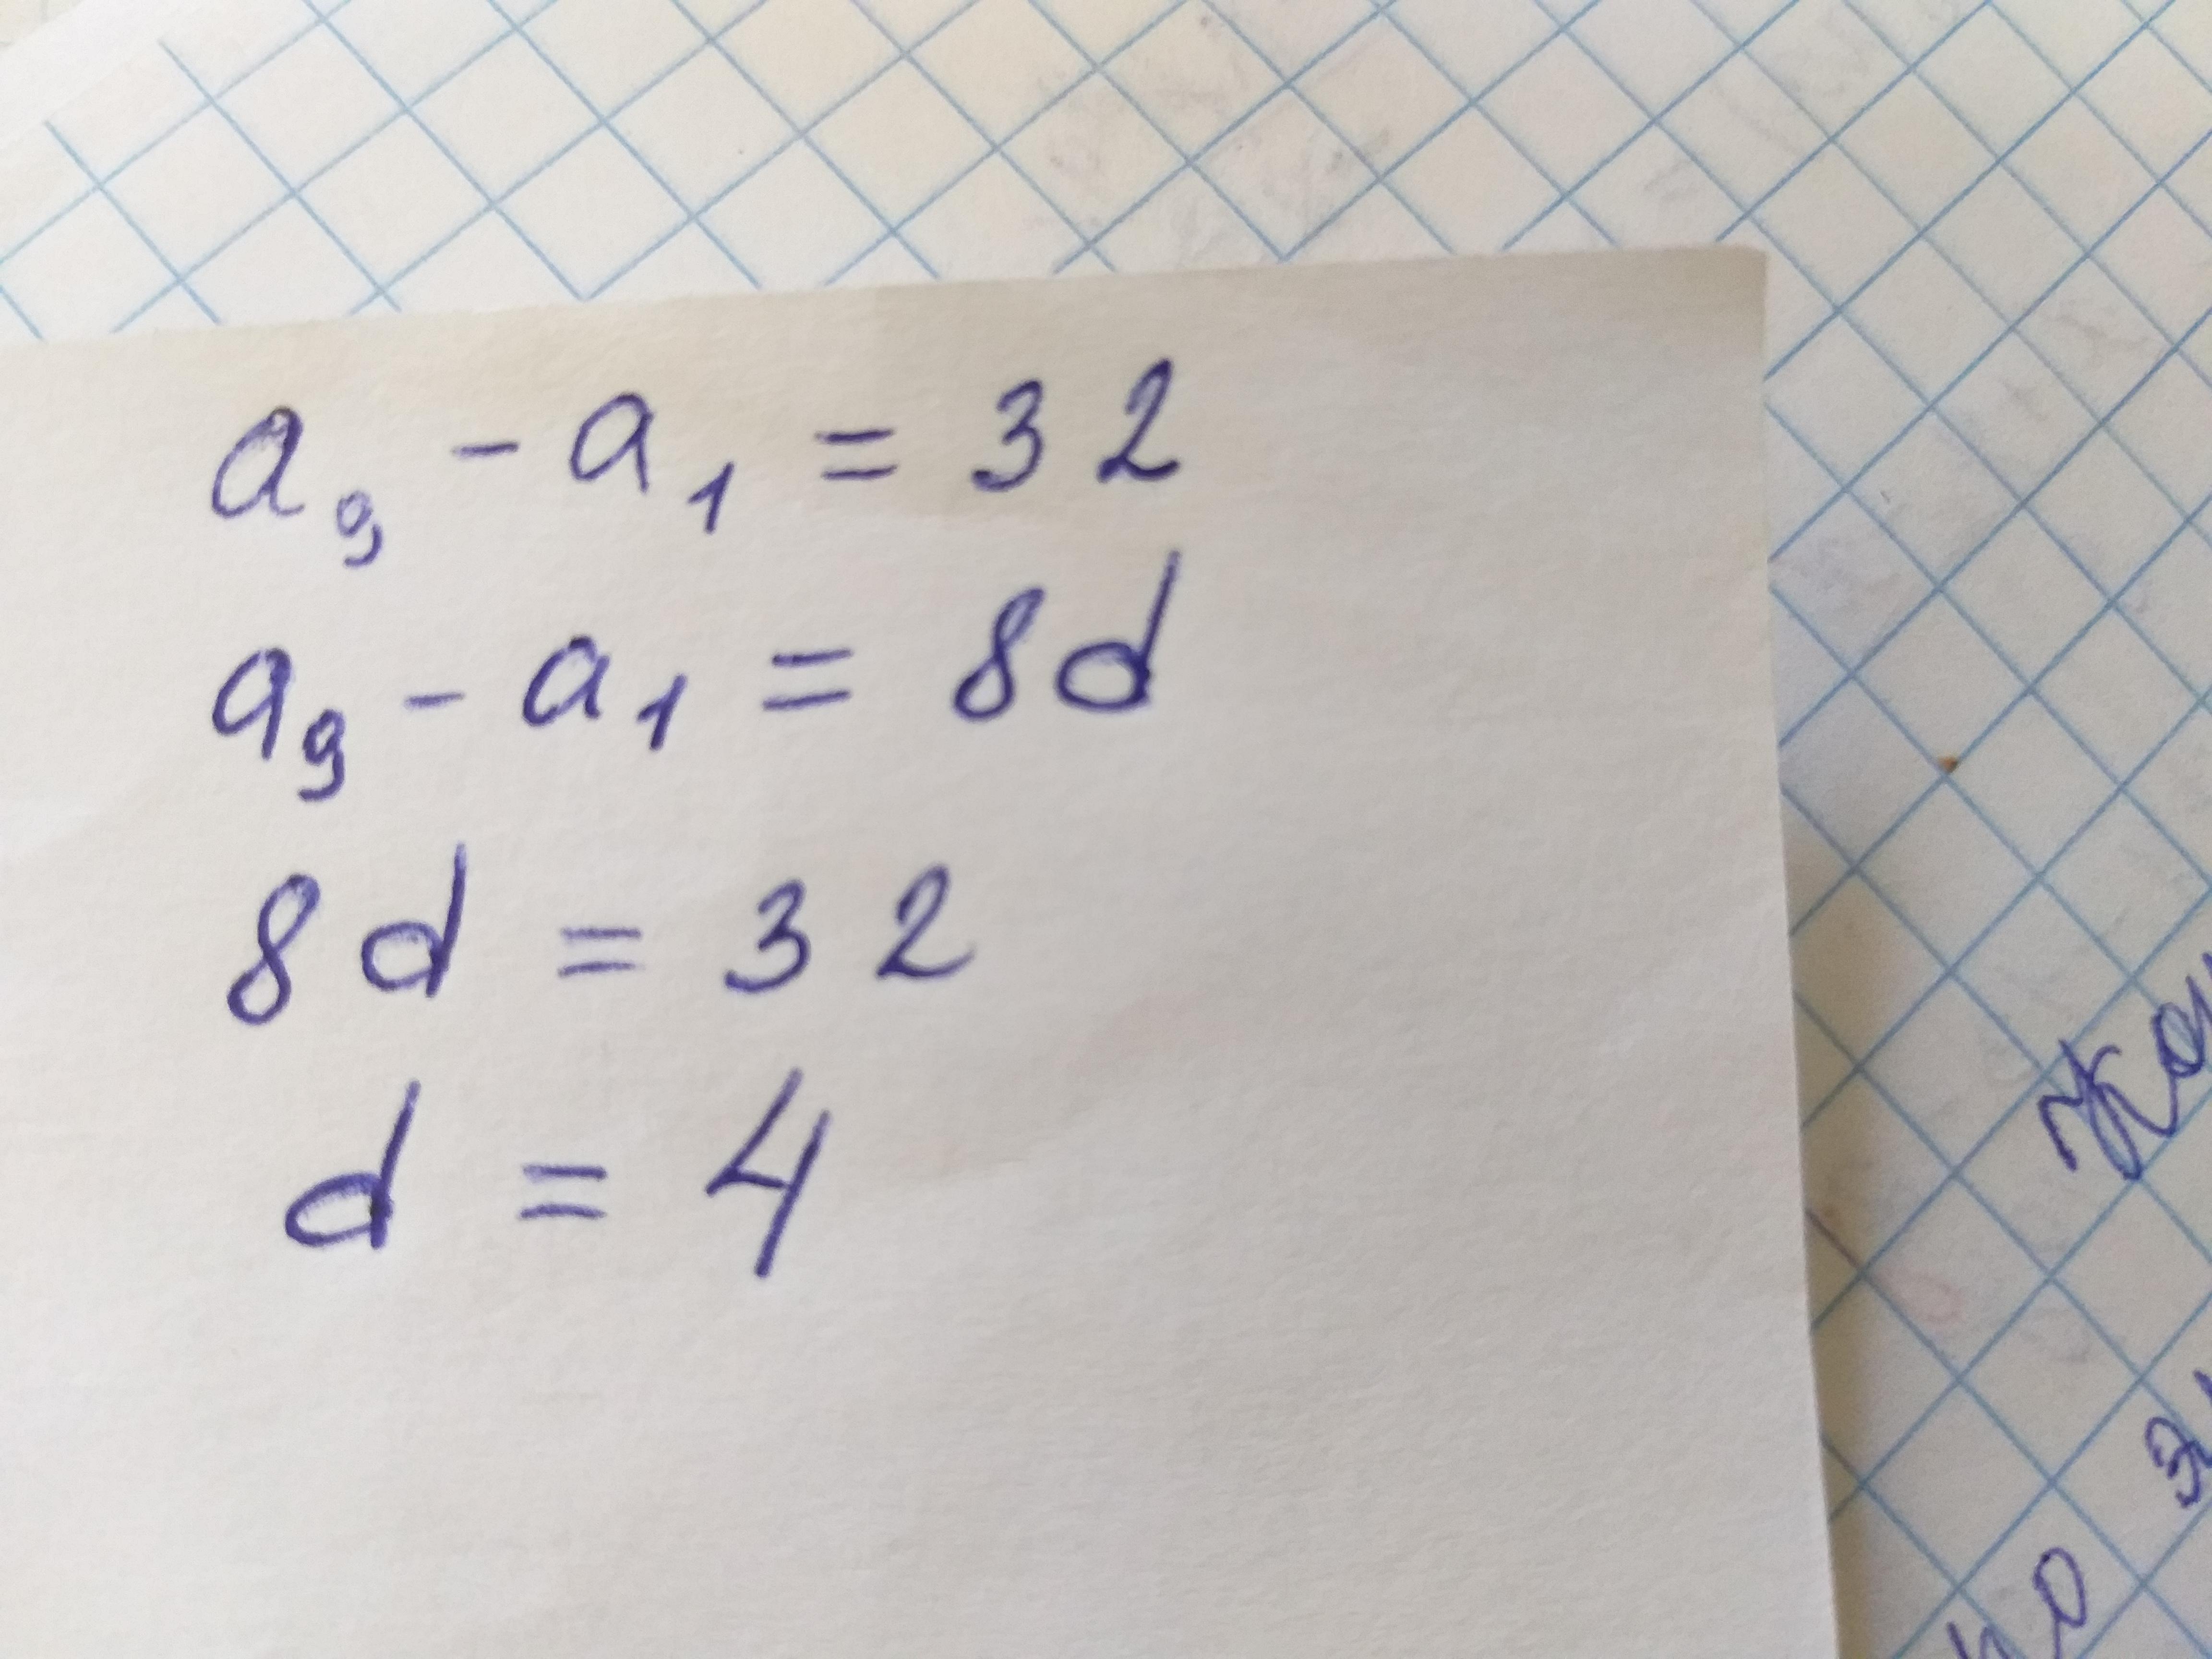 a₉ - a₁ = 32
a₉ - a₁ = 8d
8d = 32
d = 4